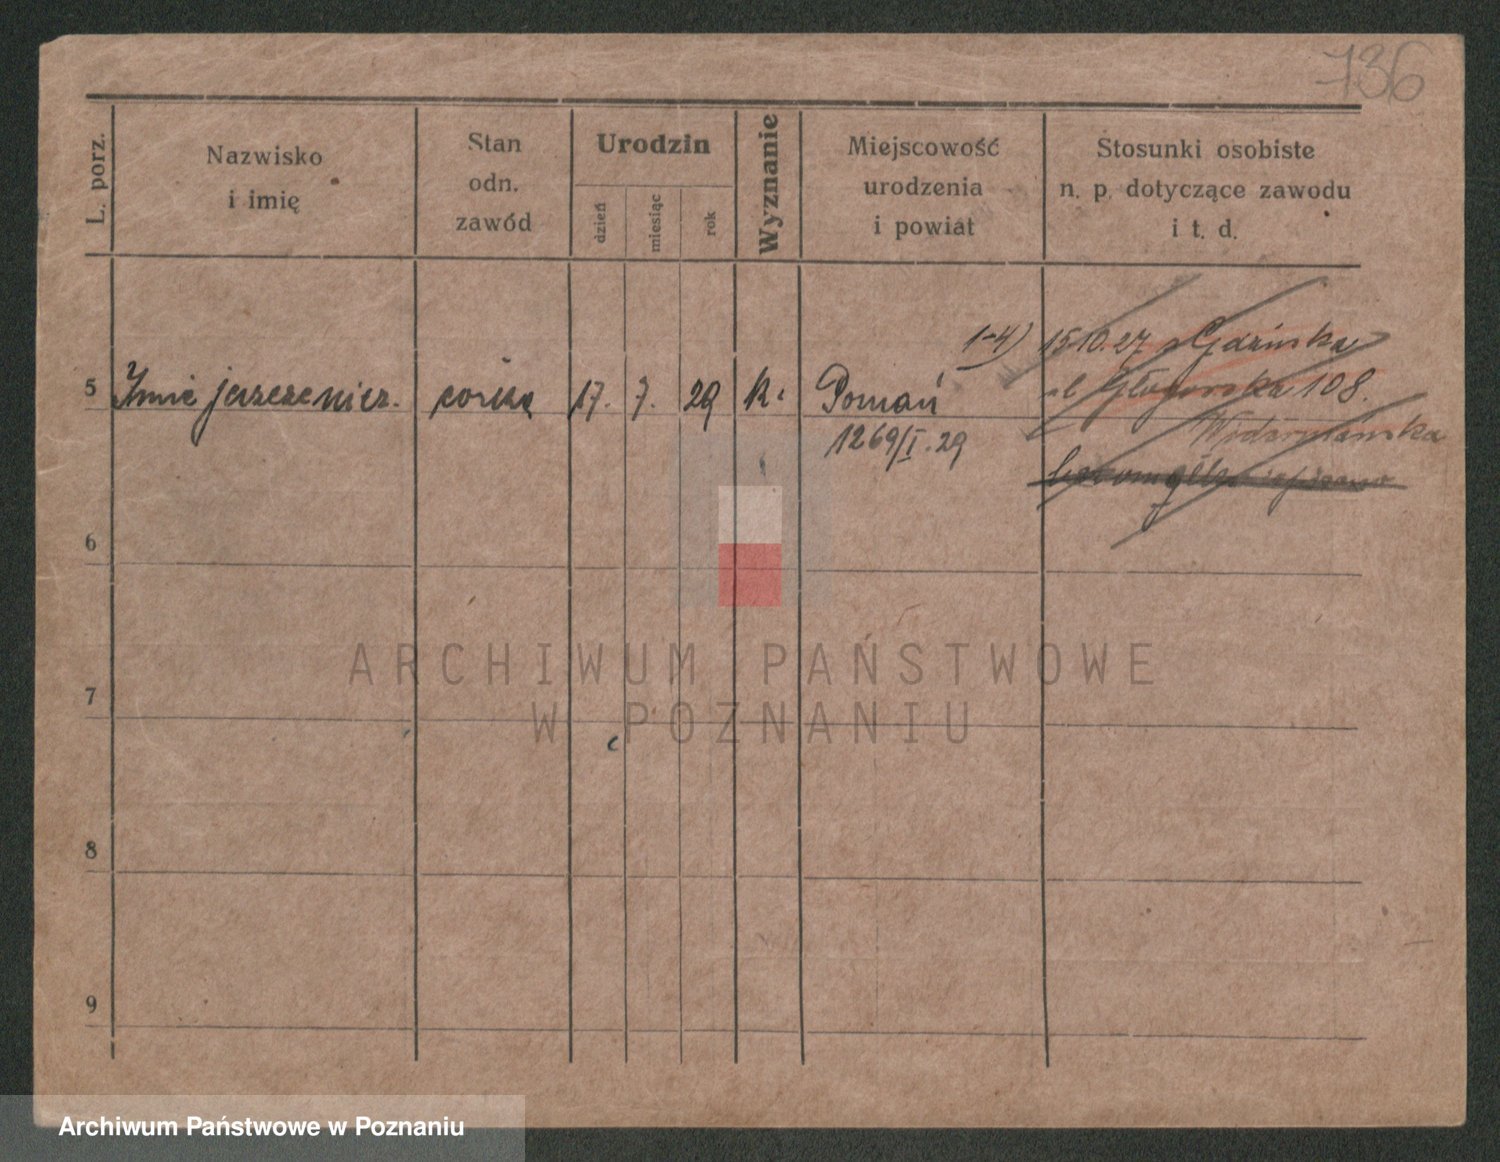 736
L. porz.
Nazwisko
i imię
Stan
odn.
zawód
Urodzin
dzień
miesiąc
rok
Wyznanie
Miejscowość
urodzenia
i powiat
Stosunki osobiste
n. p. dotyczące zawodu
i t. d.
1-4) 15.10.27 Gdzińska
5 córka 17. 7. 29 k. Poznań
108.
1269/I.29
6
7
8
9
ARCHIWUM PAŃSTWOWE
W POZNANIU
Archiwum Państwowe w Poznaniu